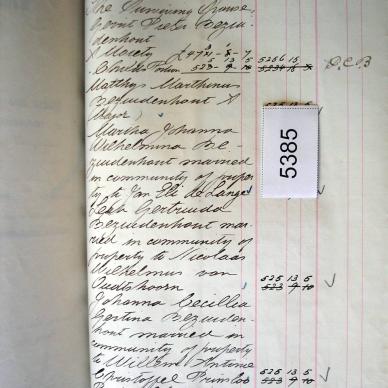 The Surviving Spouse
Gerrit Pieter Bezui-
denhout
Moiety £ 4721 - 8 - 7
Childs Portion 525 13 5 5256 15
Matthys Marthinus
Bezuidenhout A
Major
Martha Johanna
Wilhelmina Be-
zuidenhout married
in community of proper
ty to Jan Eli de Lange
Leah Gertruida
Bezuidenhout mar-
ried in community of
property to Nicolaas
Wilhelmus van
Oudtshoorn 525 13 5
523 9 10
Johanna Cecillia
Gertina Bezuiden-
hout married in
community of property
to Willem Antonie
Christoffel Prinsloo 525 13 5
523 9 10
5385